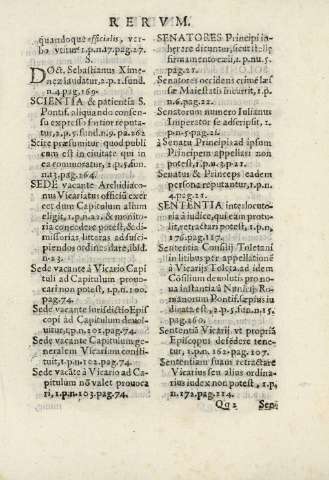 RERVM.
quandoque officialis, ver-
bo vtitur 1.p.n.17.pag.27.
S.
Doct. Sebastianus Xime-
nez laudatur, 2.p. 1. fund.
n.4.pag.169.
SCIENTIA & patientia S.
Pontif. aliquando consen-
sus expresso fortior reputa-
tur, 2.p.5. fund.n.9.pa.262
Scire præsumitur quod publi
cum est in ciuitate qui in
ea commoratur, 2.p.5.fun.
n.13.pag.264.
SEDE vacante Archidiaco-
nus Vicariatus officiū exer
cet dum Capitulum alium
eligit, 1.p.n.22. & monito-
ria concedere potest, & di-
missorias litteras ad susci-
piendos ordines dare, ibid.
n.23.
Sede vacante à Vicario Capi
tuli ad Capitulum prouo-
cari non potest, 1.p.n.100.
pag.74.
Sede vacante iurisdictio Epis
copi ad Capitulum deuol-
uitur, 1.p.n.101.pag.74.
Sede vacante Capitulum ge-
neralem Vicarium consti-
tuit, 1.p.n.102.pag.74.
Sede vacāte à Vicario ad Ca-
pitulum nō valet prouoca
ri, 1.p.n.103.pag.74.
SENATORES Principi in-
hærere dicuntur, sicut stellæ
firmamento cæli, 1.p.nu.5.
pag.21.
Senatores occidens crimē læ
sæ Maiestatis incurrit, 1.p.
n.6.pag.22.
Senatorum numero Iulianus
Imperator se adscripsit, 1.
p.n.5.pag.21.
à Senatu Principis ad ipsum
Principem appellari non
potest, 1.p.n.3.p.21.
Senatus & Princeps eadem
persona reputantur, 1.p.n.
4.pag.21.
SENTENTIA interlocuto-
ria à iudice, qui eam protu-
lit, retractari potest, 1.p.n.
176.pag.117.
Sententia Consilij Toletani
in litibus per appellationē
à Vicarijs Toleta ad idem
Consilium deuolutis pro no
ua instantia à Nuncijs Ro-
manorum Pontif. sæpius iu
dicata est, 2.p.5.fun.n.15.
pag.260.
Sententia Vicarij vt propria
Episcopi defēdere tene-
tur, 1.p.n. 162.pag.107.
Sententiam suam retractare
Vicarius seu alius ordina-
rius iudex non potest, 1.p.
n.172.pag.114.
Qq2 Sen-